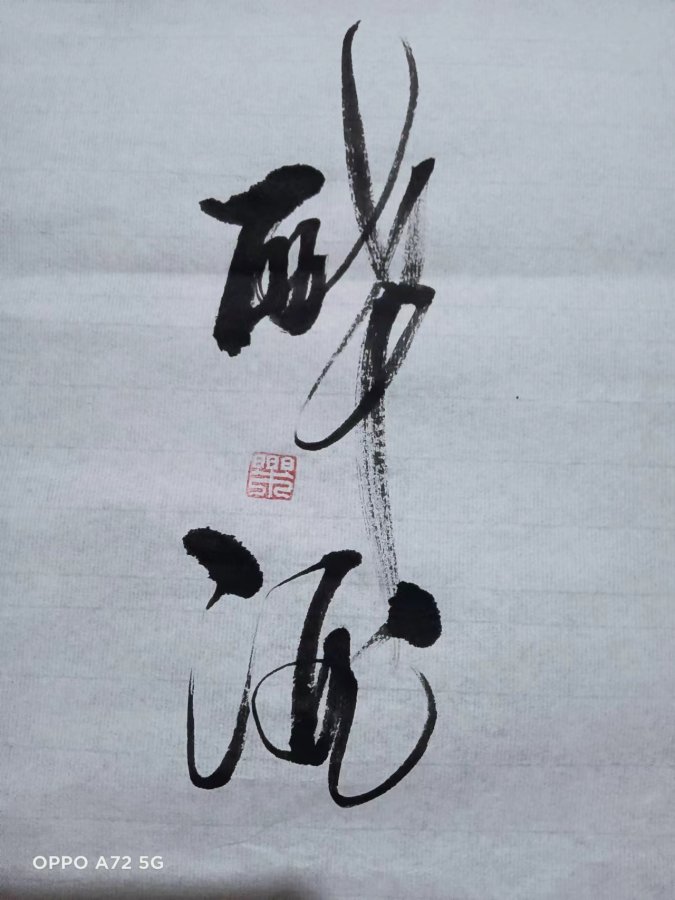 醉酒
OPPO A72 5G